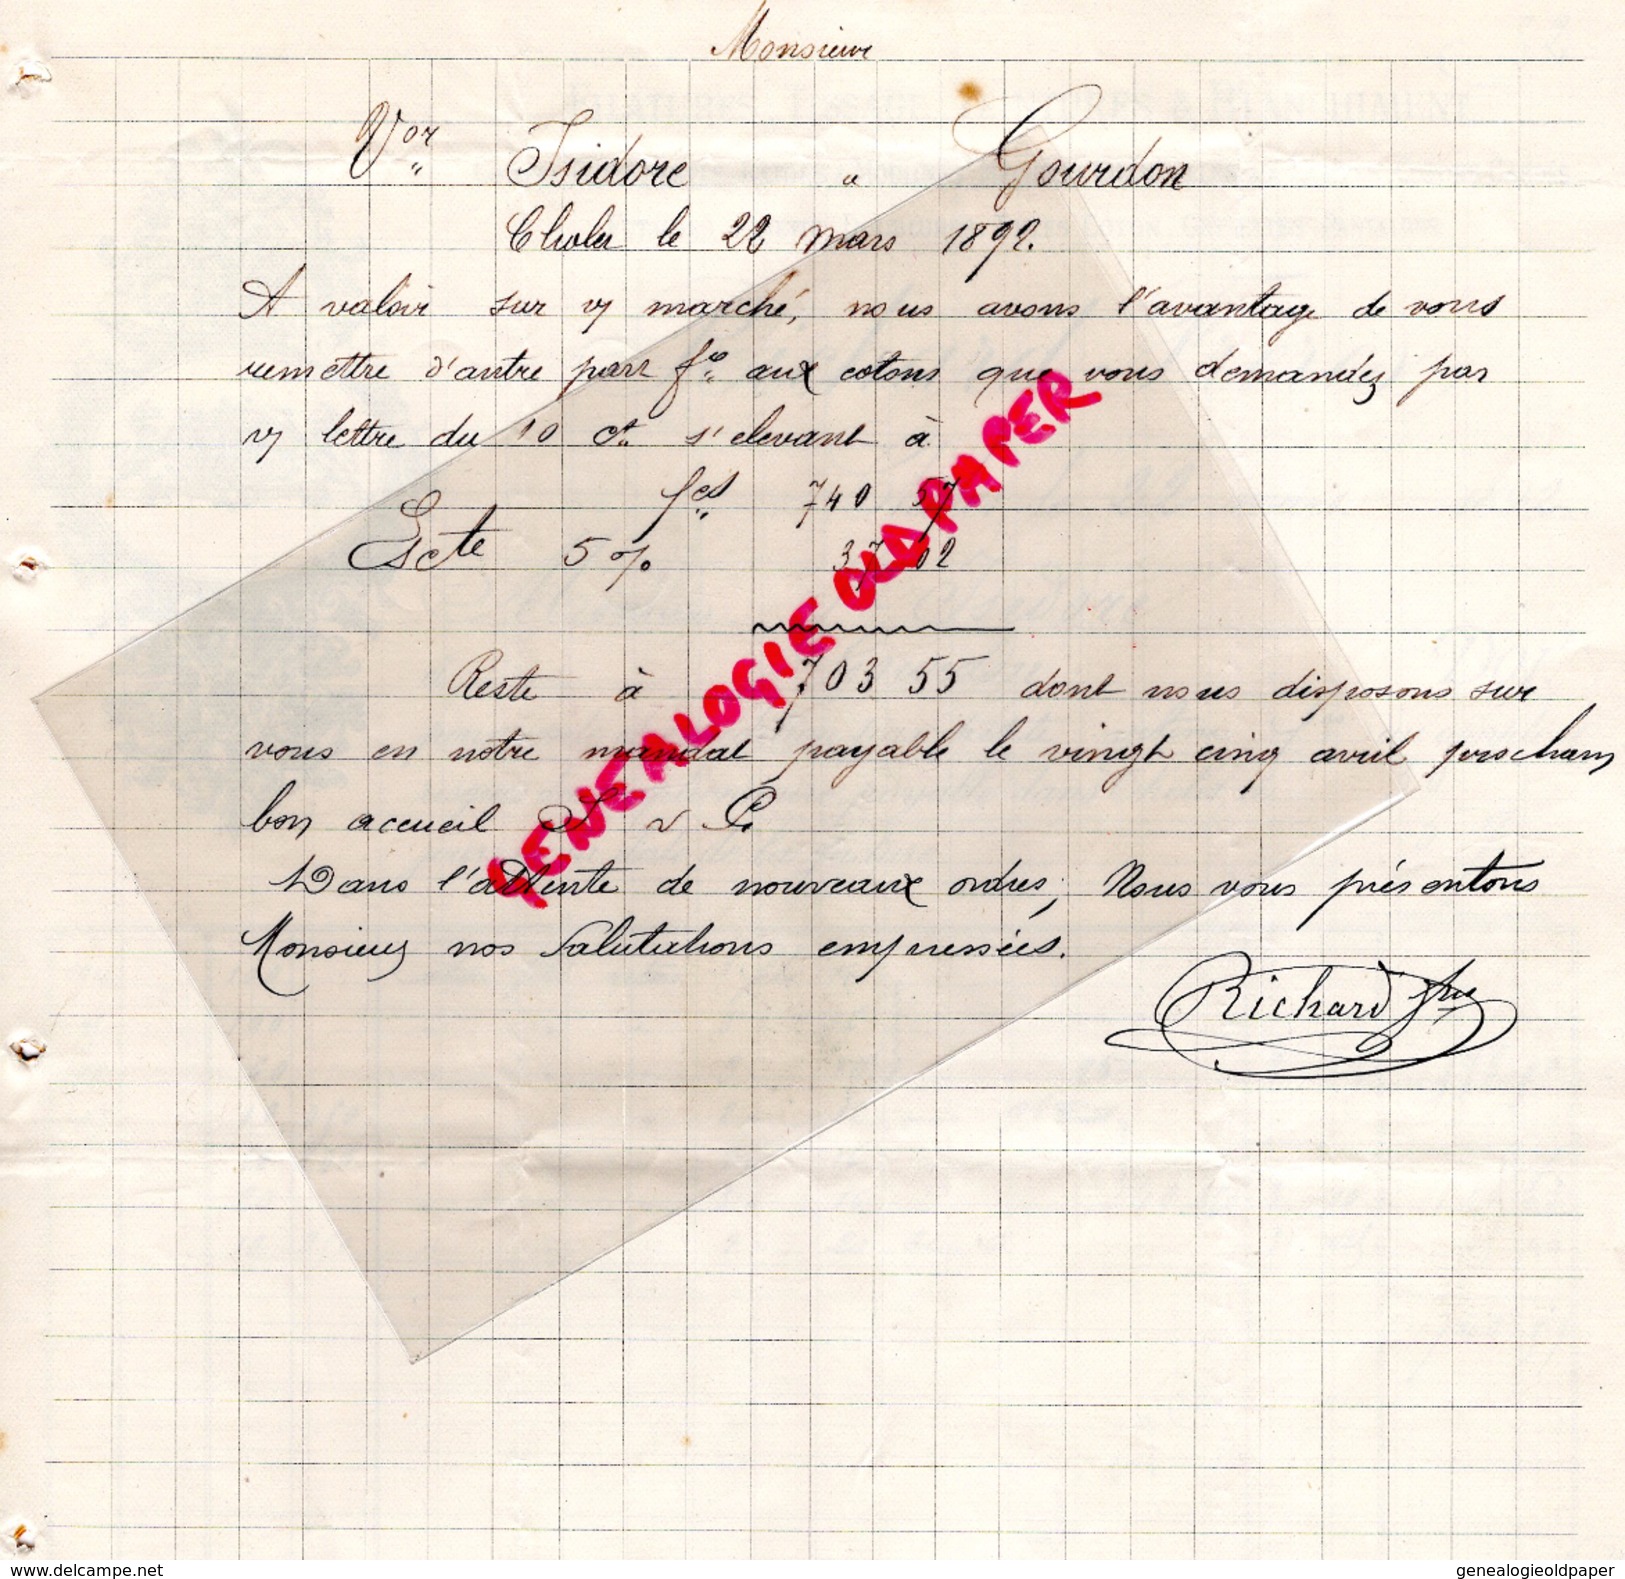 Monsieur
Vor Isidore " Gourdon
Cholet le 22 mars 1892.
A valoir sur v/ marché, nous avons l'avantage de vous
remettre d'autre part fre aux cotons que vous demandez par
v/ lettre du 10 ct s'elevant à
fcs 740 57
Escte 5 % 37 02
Reste à 703 55 dont nous disposons sur
vous en notre mandat payable le vingt cinq avril prochain
bon accueil S v P.
Dans l'attente de nouveaux ordres, Nous vous présentons
Monsieur nos Salutations empressées.
Richard fres
GENEALOGIE OLD PAPER
delcampe.net
genealogieoldpaper